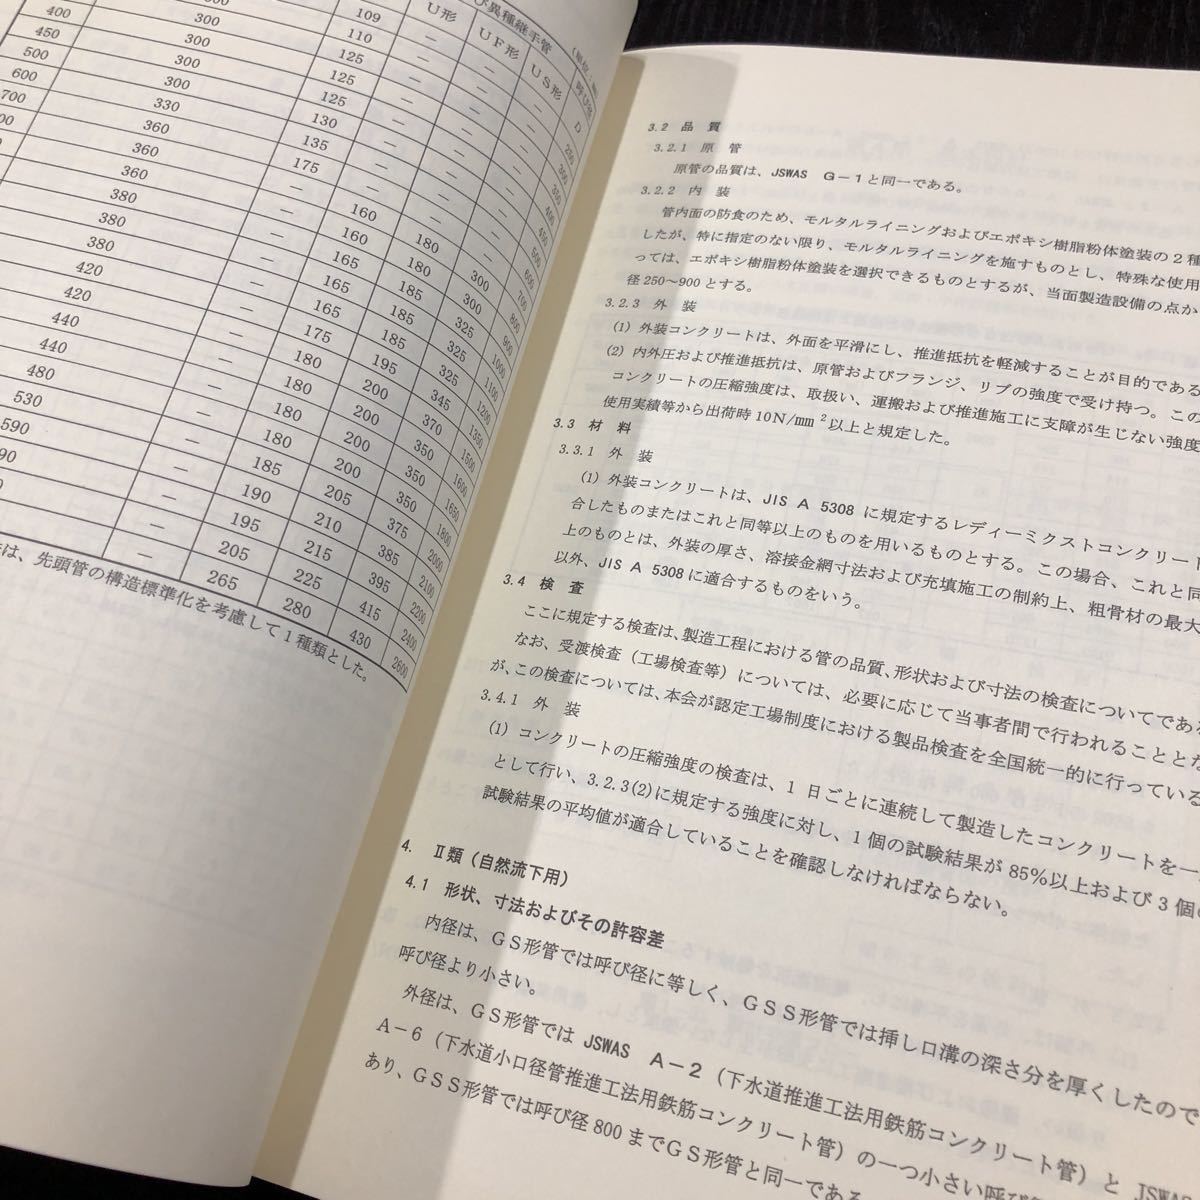 び異種継手管
(単位：
U形
UF形
US形
呼び径
D
400
450
500
600
700
300
300
300
300
300
330
360
360
360
380
380
380
420
420
440
440
480
530
590
109
110
125
125
125
130
135
175
160
160
165
165
165
175
180
180
180
180
185
190
195
205
265
180
180
185
185
185
195
200
200
200
200
205
210
215
225
280
300
300
325
325
325
345
370
350
350
350
375
385
395
415
430
250
300
350
400
450
500
600
700
800
900
1000
1100
1200
1350
1500
1600
1650
1800
2000
2100
2200
2400
2600
は、先頭管の構造標準化を考慮して1種類とした。
3.2 品質
3.2.1 原管
原管の品質は、JSWAS G－1と同一である。
3.2.2 内装
管内面の防食のため、モルタルライニングおよびエポキシ樹脂粉体塗装の2種
したが、特に指定のない限り、モルタルライニングを施すものとし、特殊な使用
っては、エポキシ樹脂粉体塗装を選択できるものとするが、当面製造設備の点か
径250～900とする。
3.2.3 外装
(1) 外装コンクリートは、外面を平滑にし、推進抵抗を軽減することが目的である
(2) 内外圧および推進抵抗は、原管およびフランジ、リブの強度で受け持つ。この
コンクリートの圧縮強度は、取扱い、運搬および推進施工に支障が生じない強度
使用実績等から出荷時10N/mm²以上と規定した。
3.3 材料
3.3.1 外装
(1) 外装コンクリートは、JIS A 5308 に規定するレディーミクストコンクリート
合したものまたはこれと同等以上のものを用いるものとする。この場合、これと同
上のものとは、外装の厚さ、溶接金網寸法および充填施工の制約上、粗骨材の最大
以外、JIS A 5308に適合するものをいう。
3.4 検査
ここに規定する検査は、製造工程における管の品質、形状および寸法の検査についてであ
なお、受渡検査（工場検査等）については、必要に応じて当事者間で行われることとな
が、この検査については、本会が認定工場制度における製品検査を全国統一的に行っている
3.4.1 外装
(1) コンクリートの圧縮強度の検査は、1日ごとに連続して製造したコンクリートを一
として行い、3.2.3(2)に規定する強度に対し、1個の試験結果が85%以上および3個の
試験結果の平均値が適合していることを確認しなければならない。
4. Ⅱ類（自然流下用）
4.1 形状、寸法およびその許容差
内径は、GS形管では呼び径に等しく、GSS形管では挿し口溝の深さ分を厚くしたので
呼び径より小さい。
外径は、GS形管では JSWAS A－2（下水道推進工法用鉄筋コンクリート管）と JSWAS
A－6（下水道小口径管推進工法用鉄筋コンクリート管）の一つ小さい呼び
あり、GSS形管では呼び径800までGS形管と同一である